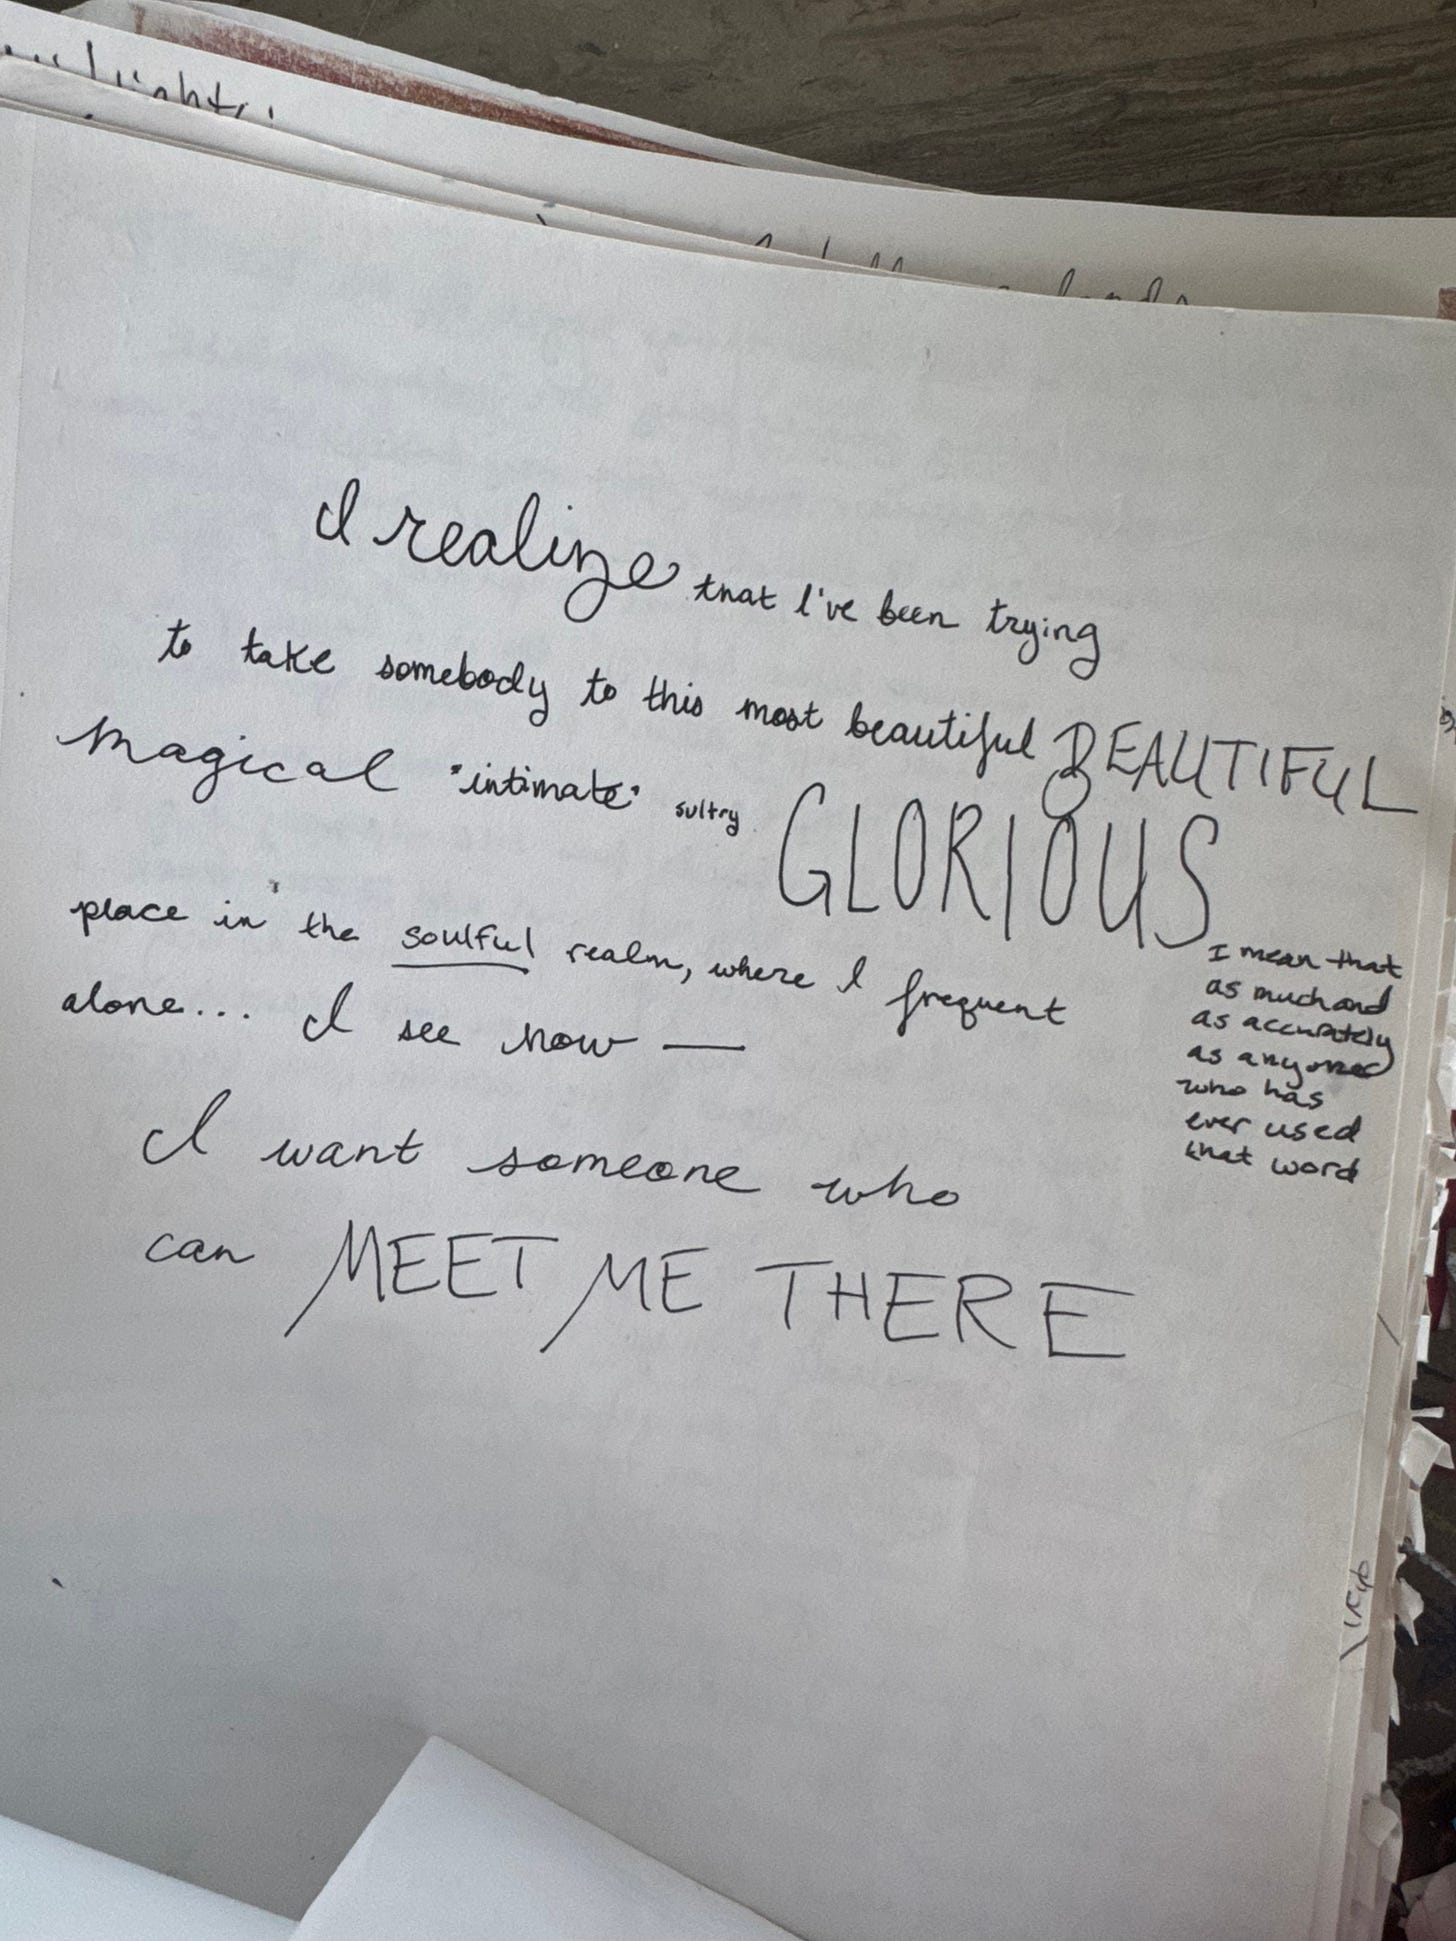 I realize that I've been trying
to take somebody to this most beautiful BEAUTIFUL
magical "intimate" sultry GLORIOUS
I mean that
as much and
as accurately
as anyone
who has
ever used
that word
place in the soulful realm, where I frequent
alone... I see now —
I want someone who
can MEET ME THERE